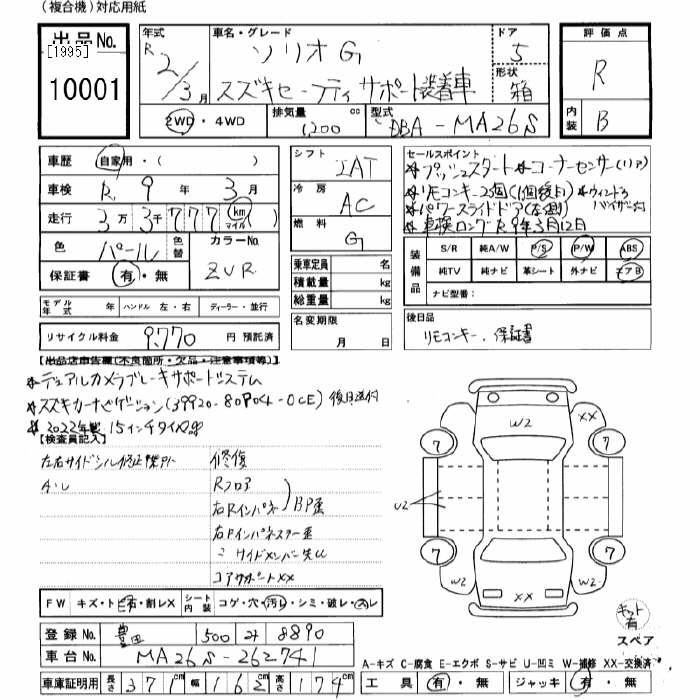 (複合機)対応用紙
出品No.
[1995]
10001
年式 R2/3月
車名・グレード ソリオ G
スズキセーフティサポート装着車
ドア 5
形状 箱
2WD・4WD
排気量 1200 cc
型式 DBA-MA26S
評価点 R
内装 B
車歴 自家用・( )
車検 R 9年 3月
走行 3万3千777 km マイル
色 パール 色替
カラーNo. ZVR
保証書 有・無
モデル年式 年 ハンドル 左・右 ディーラー・並行
リサイクル料金 9,770 円 預託済
シフト IAT
冷房 AC
燃料 G
乗車定員 名
積載量 kg
総重量 kg
名変期限 月 日
セールスポイント
*プッシュスタート *コーナーセンサー(リア)
*リモコンキー2個(1個後日) *ウィンドウバイザー付
*パワースライドドア(左側)
*車検ロング R9年3月12日
装備品 S/R 純A/W P/S P/W ABS
純TV 純ナビ 革シート 外ナビ エアB
ナビ型番:
後日品
リモコンキー、保証書
【出品店申告欄(不良箇所・欠品・注意事項等)】
*デュアルカメラブレーキサポートシステム
*スズキカーナビゲーション(39920-80P04-0CE)後日送付
*2022年製 15インチタイヤ
【検査員記入】
左右サイドシル修正跡
A・U
修復
Rフロア
右Rインパネ BP歪
右Fインパネステー歪
〃 サイドメンバー先U
コアサポートXX
FW キズ・トビ石・割レX
シート内装 コゲ・穴・汚レ・シミ・破レ・スレ
登録No. 豊田 500 そ 8890
車台No. MA26S-262741
車庫証明用 長さ 371cm 幅 162cm 高さ 174cm
W2
XX
7
7
U2
7
7
W2
W2
XX
キット有
スペア
A-キズ C-腐食 E-エクボ S-サビ U-凹ミ W-補修 XX-交換済
工具 有・無 ジャッキ 有・無